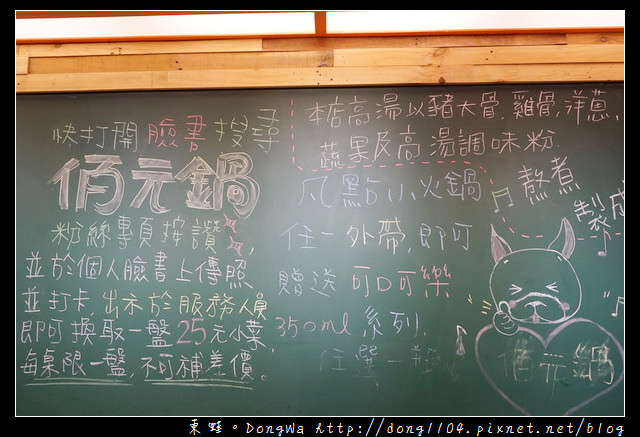 快打開臉書搜尋
佰元鍋
粉絲專頁按讚,
並於個人臉書上傳照
並打卡出示於服務人員
即可換取一盤25元小菜,
每桌限一盤,不可補差價。
本店高湯以豬大骨.雞骨,洋蔥、
蔬果及高湯調味粉.
熬煮
製成
凡點小火鍋
任一外帶,即可
贈送可口可樂
350ml系列.
任選一瓶
佰元鍋
東蛙。DongWa http://dong1104.pixnet.net/blog